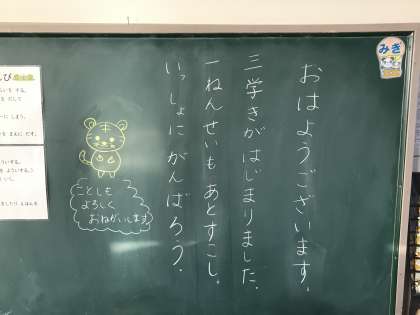 みぎ
おはようございます。
三学きがはじまりました。
一ねんせいもあとすこし。
いっしょにがんばろう。
ことしも
よろしく
おねがいします